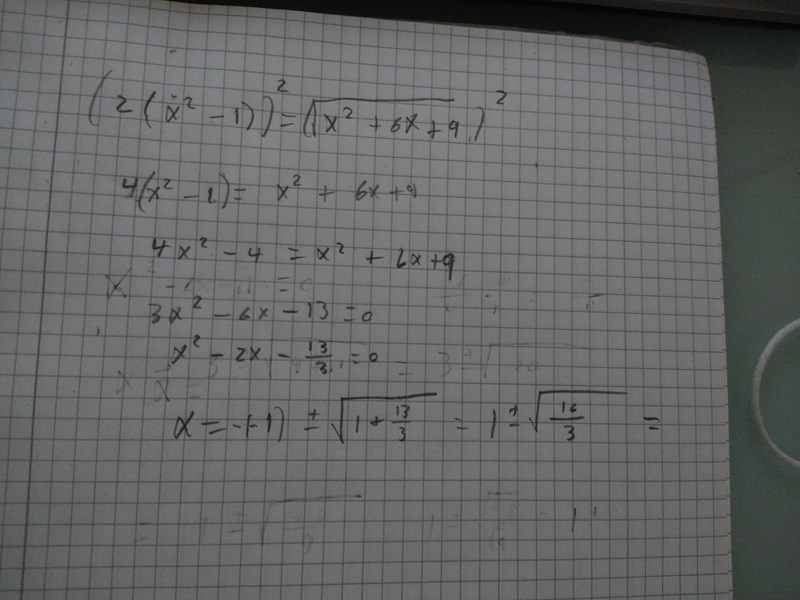 (2(x² - 1))² = (√x² + 6x + 9)²
4(x² - 1) = x² + 6x + 9
4x² - 4 = x² + 6x + 9
3x² - 6x - 13 = 0
x² - 2x - 13/3 = 0
x = -(-1) ± √1 + 13/3 = 1 ± √16/3 =